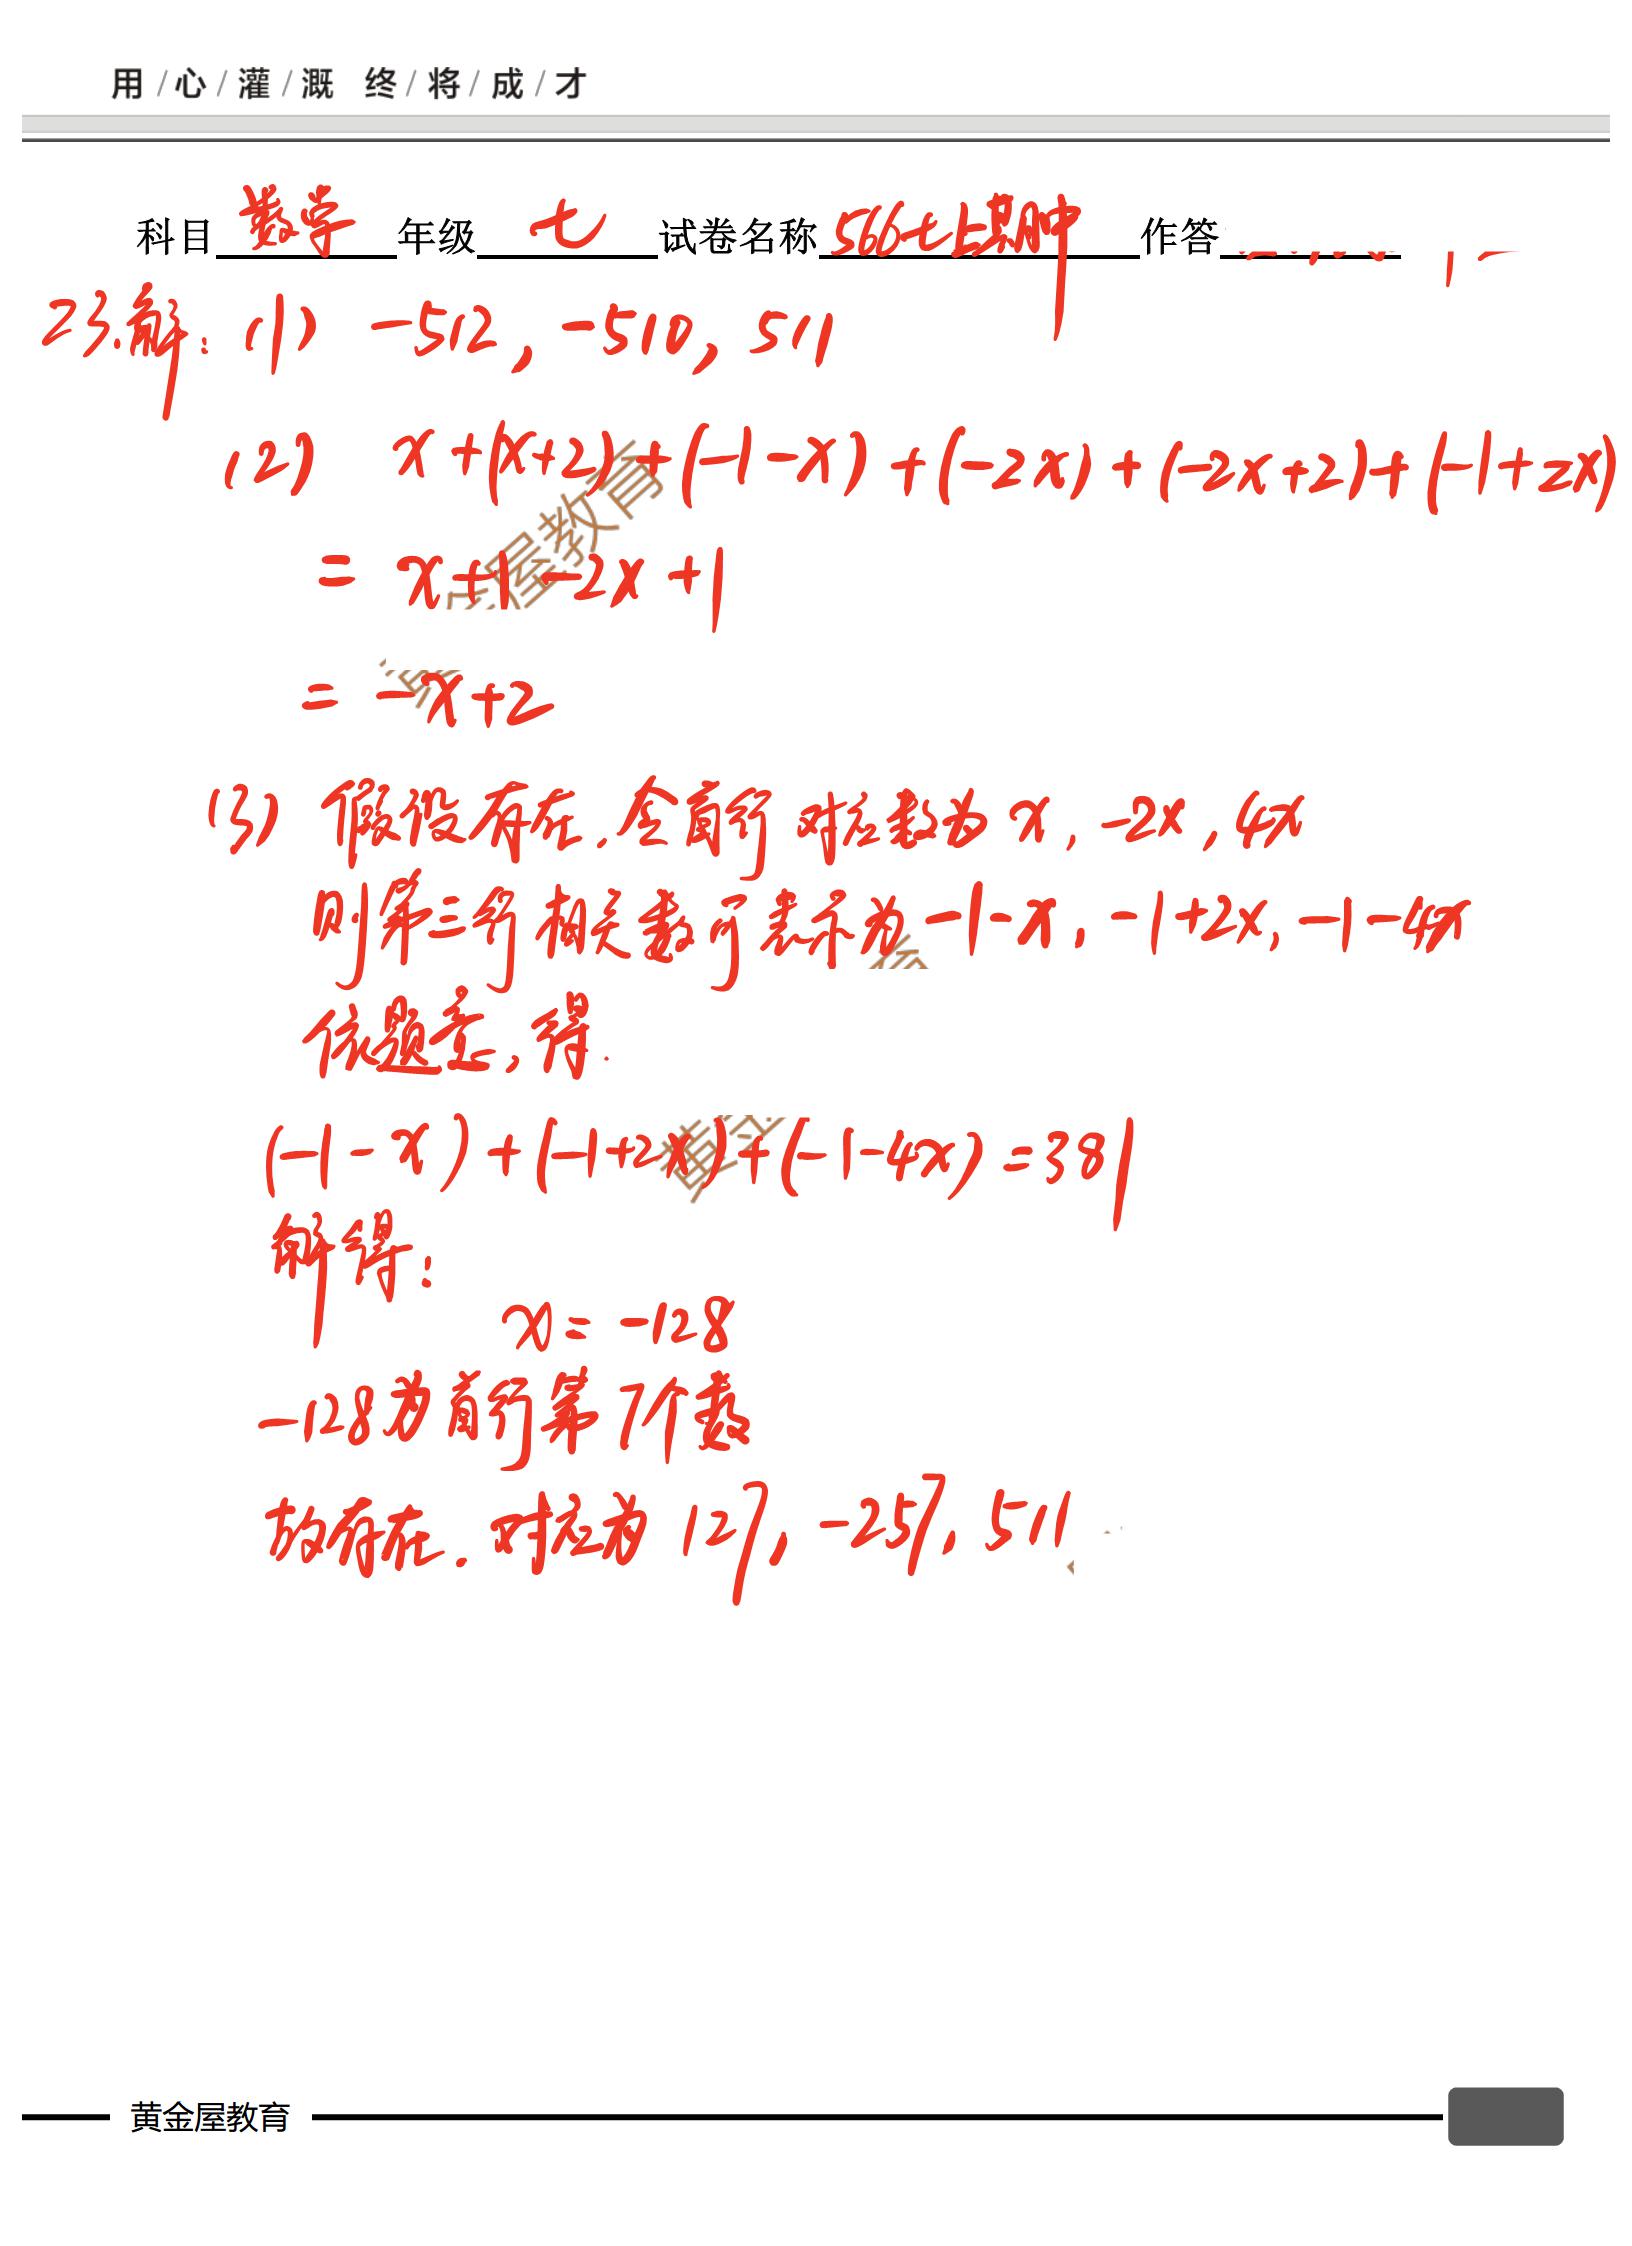 用/心/灌/溉 终/将/成/才
科目 数学 年级 七 试卷名称 566七上期中 作答
23.解: (1) -512, -510, 511
(2) x+(x+2)+(-1-x)+(-2x)+(-2x+2)+(-1+2x)
= x+1-2x+1
= -x+2
(3) 假设存在.令首行对应数为 x, -2x, 4x
则第三行相关数可表示为 -1-x, -1+2x, -1-4x
依题意,得.
(-1-x)+(-1+2x)+(-1-4x)=381
解得:
x=-128
-128为首行第7个数
故存在.对应为 127, -257, 511
黄金屋教育